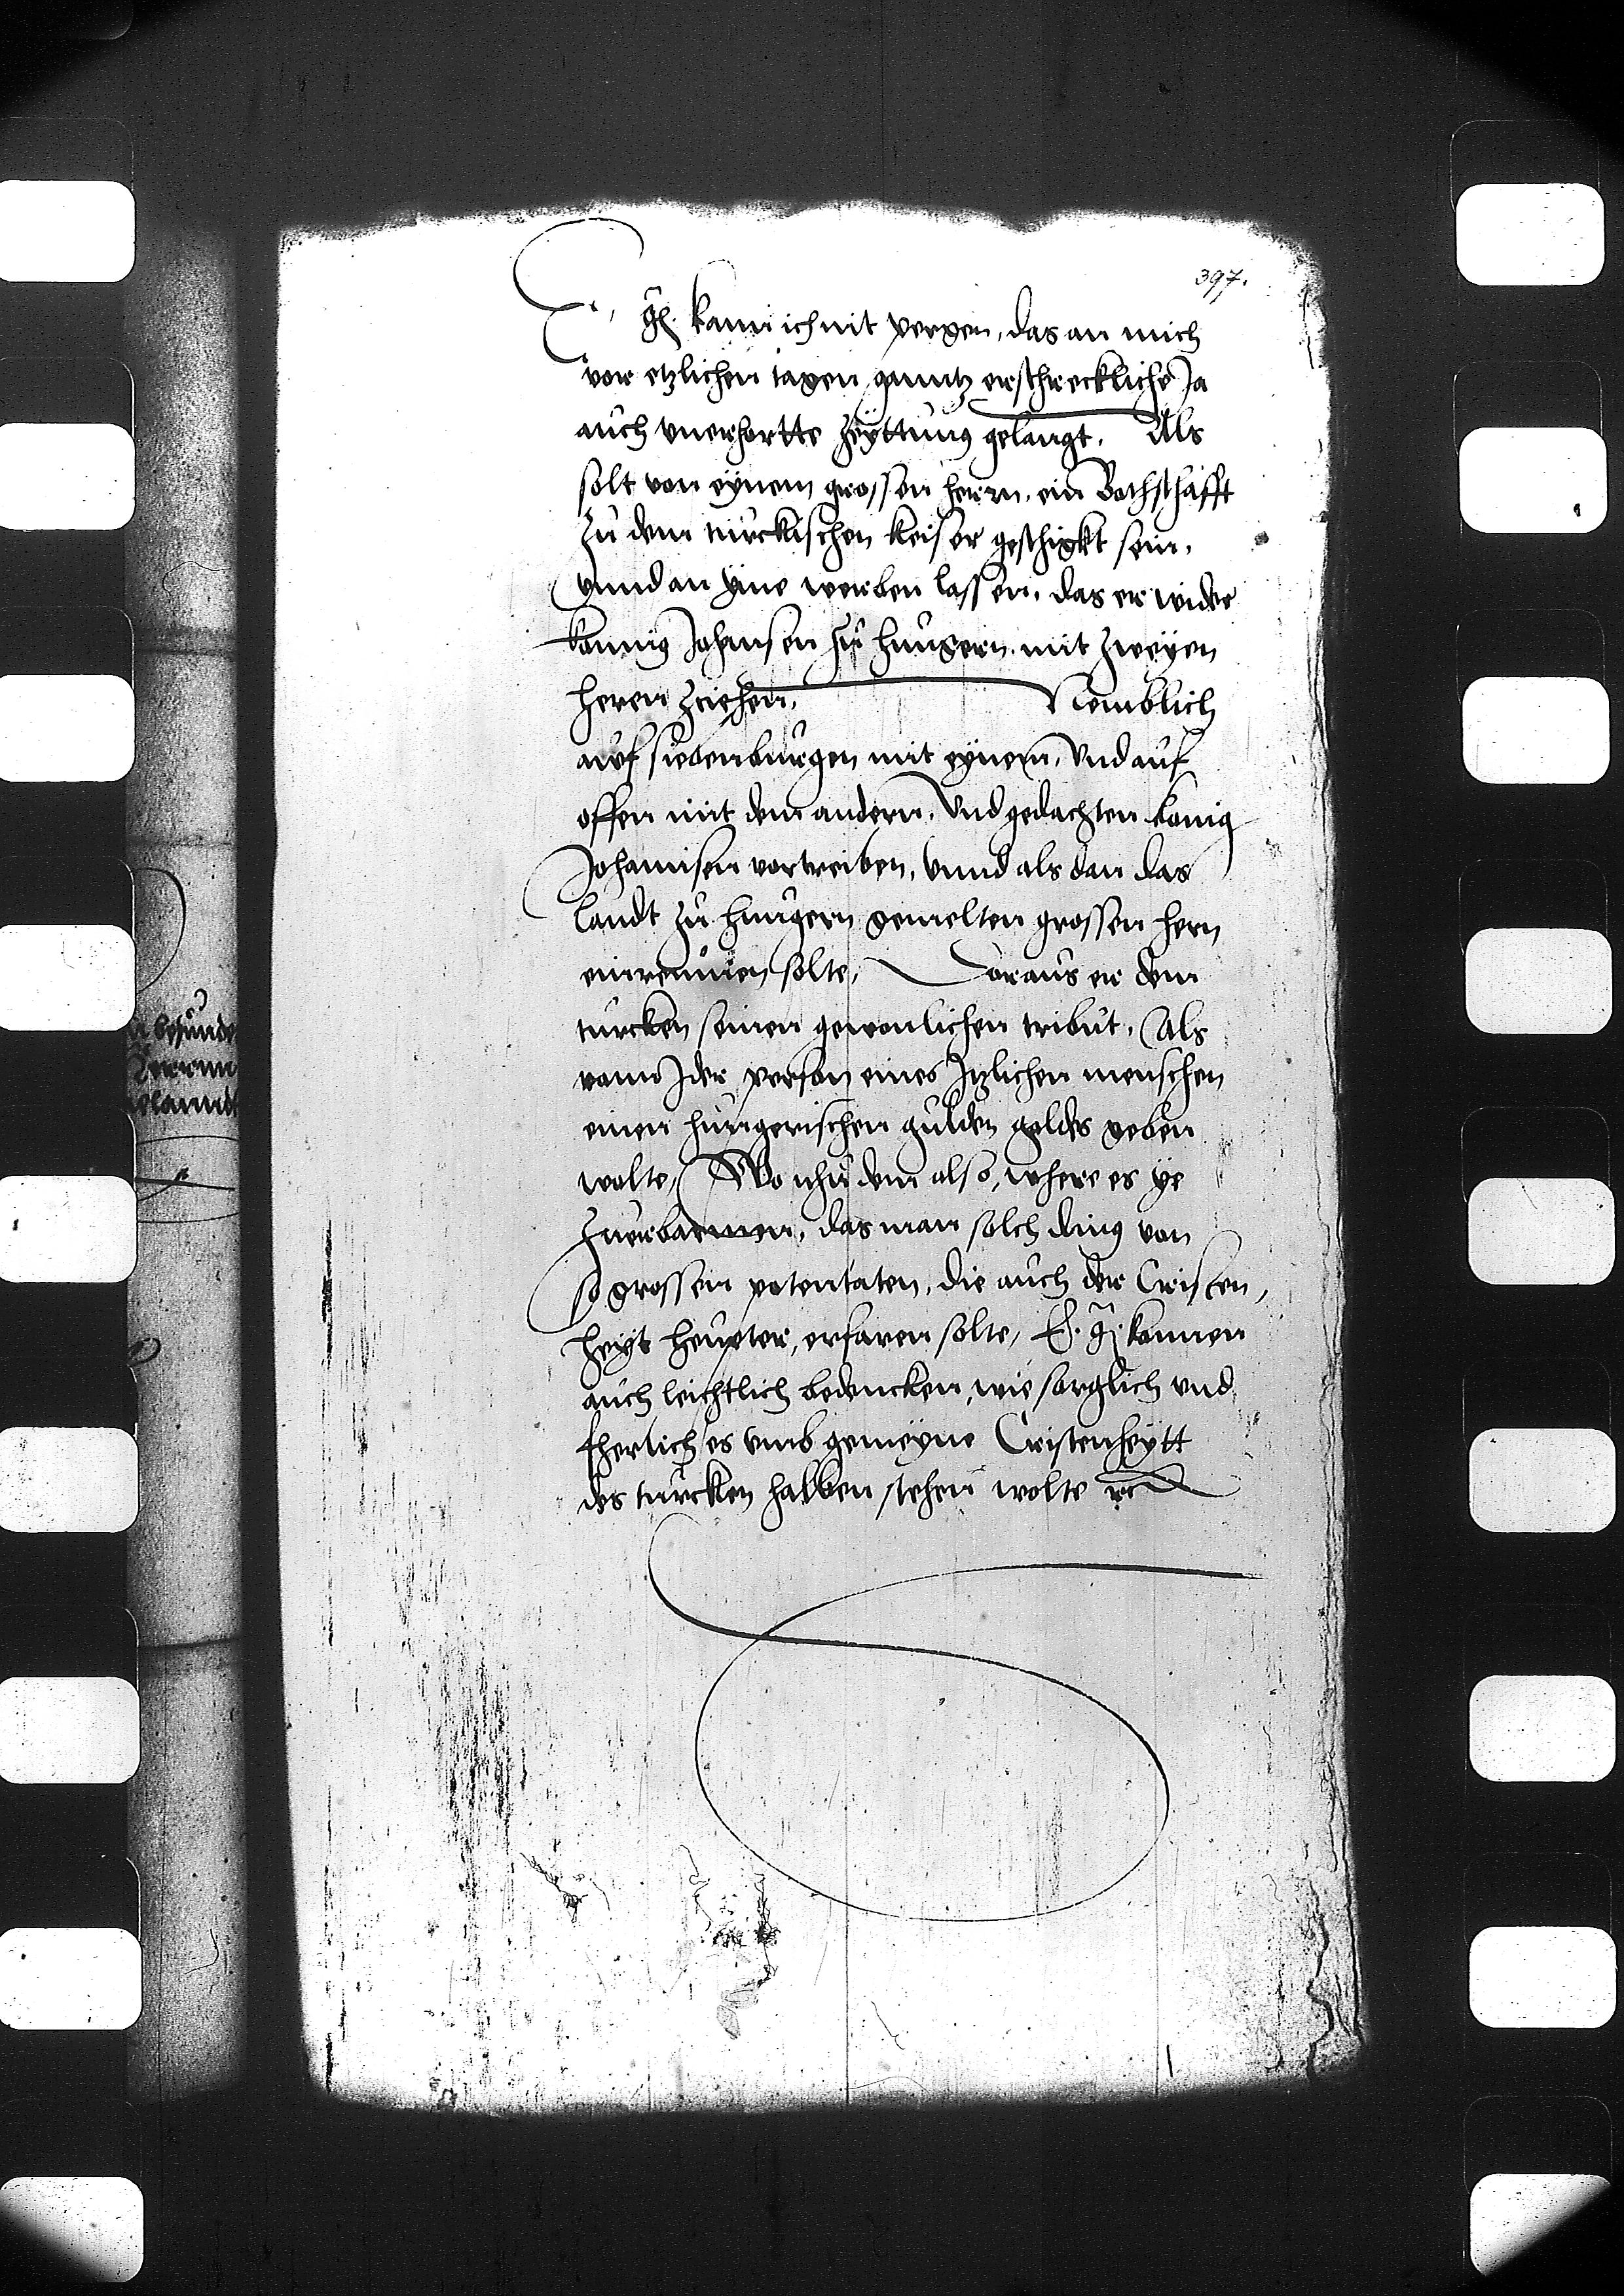 397.
E. g. kann ich nit pergen, das an mich
vor etzlichen tagen gantz erschreckliche Ja
auch vnerhortte Zeÿttung gelangt. Als
solt von eÿnem grossen herrn, ein Bothschafft
zu dem turckischen keiser geschigkt sein,
Vnnd an ÿne werben lassen, das er wider
konnig Johansen zu hungern mit zweÿen
heren ziehen, Nemblich
auf siebenburgen mit eÿnem, Vnd auf
offen mit dem andern, Vnd gedachten konig
Johannsen vortreiben, Vnnd als dan das
landt zu hungern gemelten grossen hern
einreumen solte, Doraus er dem
turcken seinen gewonlichen tribut, Als
vonn Jder person eines Itzlichen menschen
einen hungerischen gulden geldes geben
wolte, Wo nhu dem also, where es ÿe
zuerbarmen, das man solch ding von
so grossen potentaten, die auch der Cristen,
heyt heupter, erfaren solte, E. g. konnen
auch leichtlich bedencken, wie sorglich vnd
fherlich es vmb gemeyne Cristenheytt
des turcken halben stehen wolte rc
n besunde
elannd